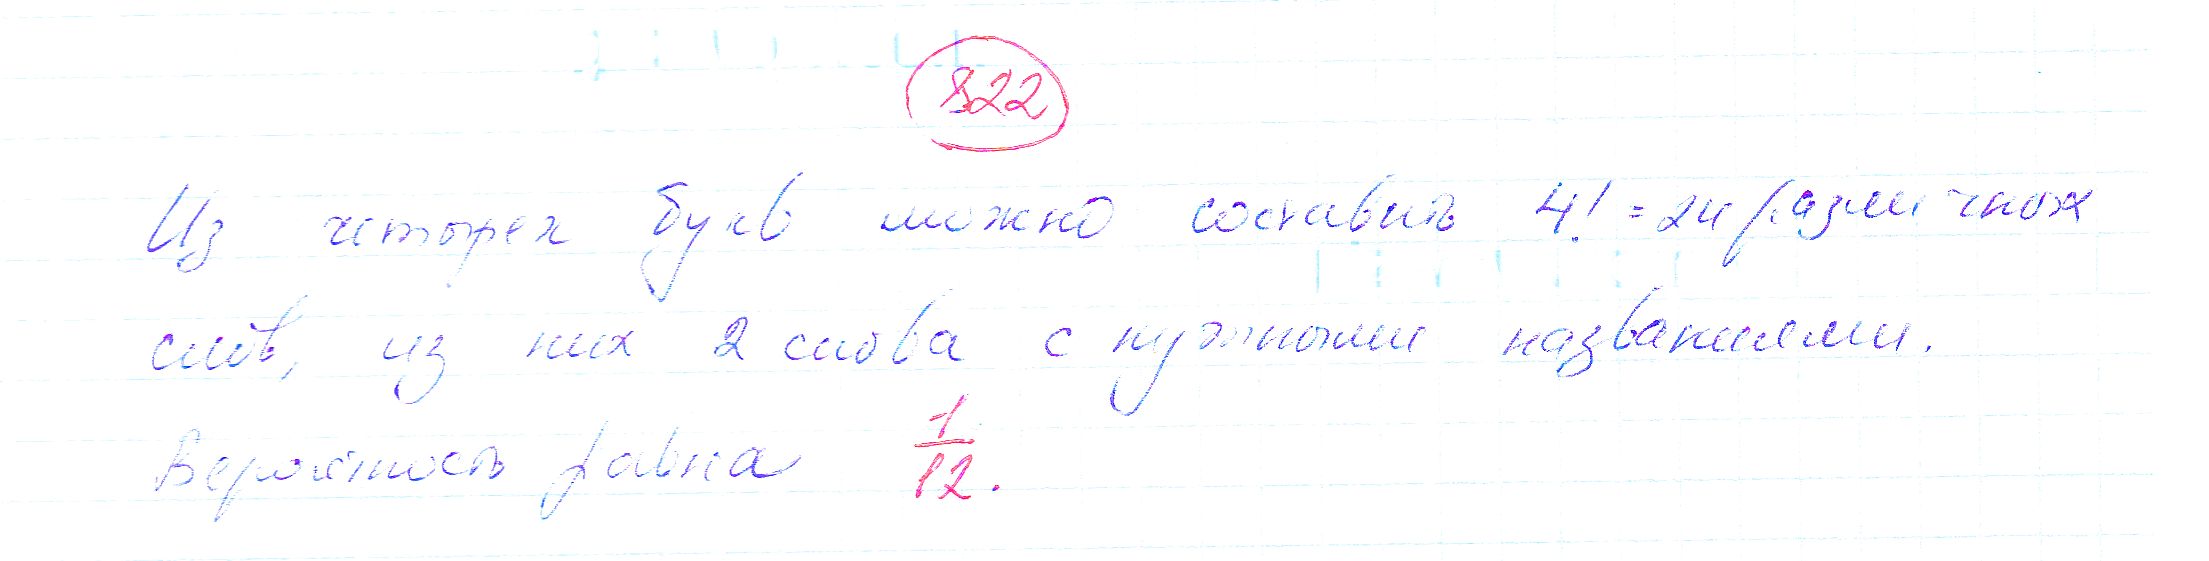 822
Из четырех букв можно составить 4! = 24 различных
слов, из них 2 слова с нужными названиями.
Вероятность равна 1/12.